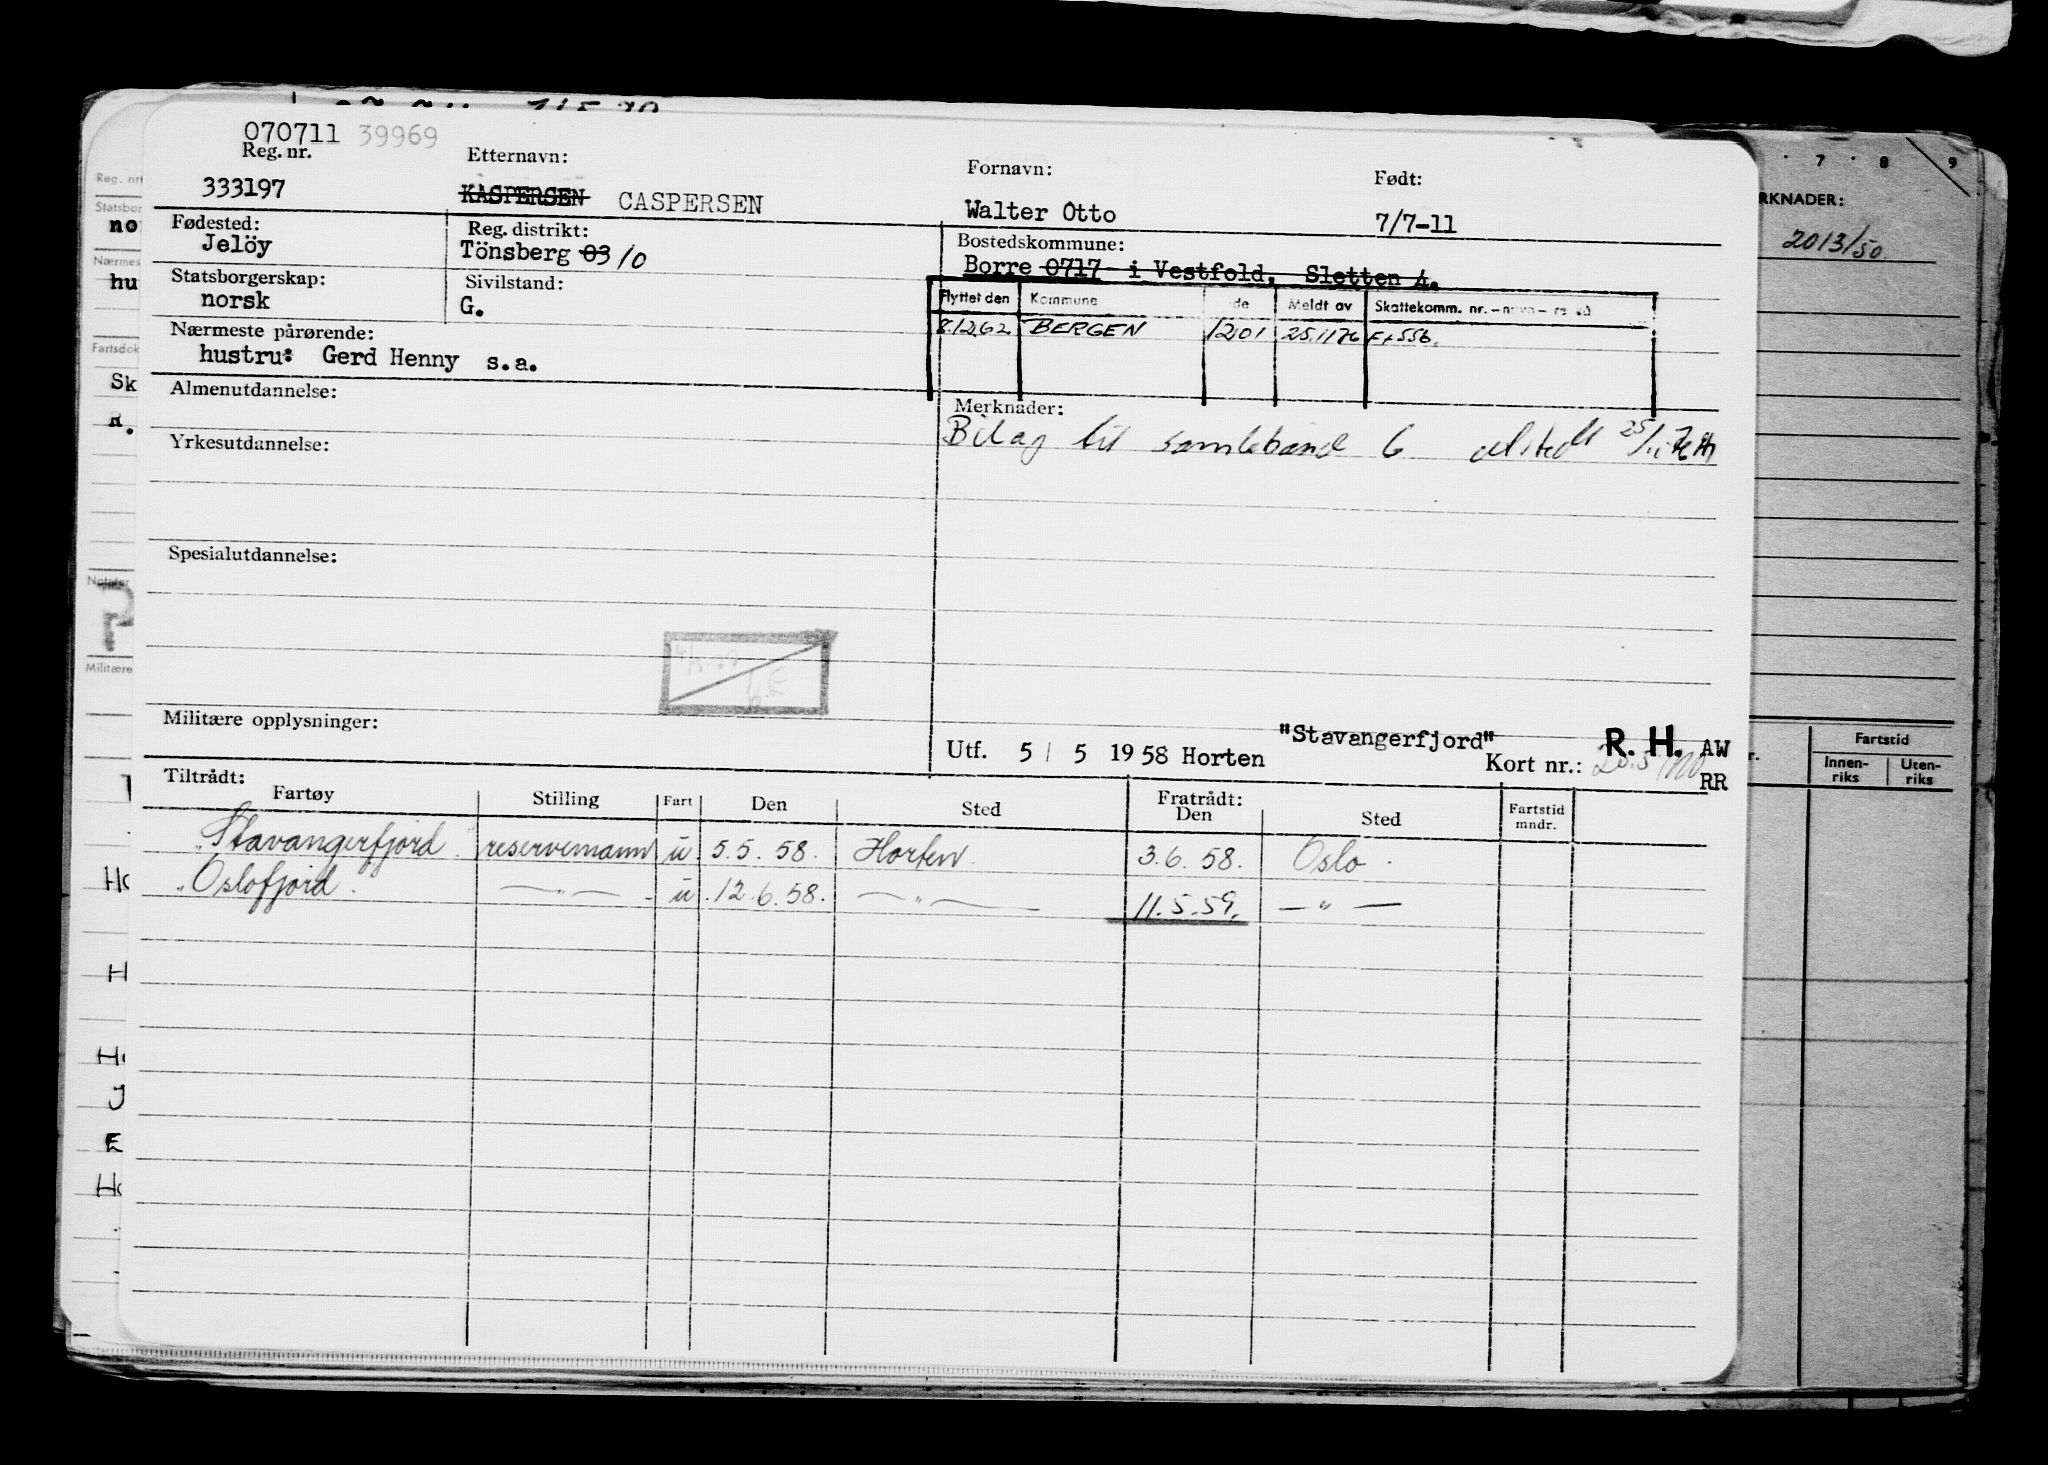 070711 39969
Reg. nr. Etternavn: Fornavn: Født:
333197 KASPERSEN CASPERSEN Walter Otto 7/7-11
Fødested: Reg. distrikt: Bostedskommune:
Jelöy Tönsberg 03 10 Borre 0717 i Vestfold, Sletten 4.
Statsborgerskap: Sivilstand:
norsk G.
Flyttet den Kommune de Meldt av Skattekomm. nr.
8.12.62 BERGEN 1201 25.11 76 F+556.
Nærmeste pårørende:
hustru: Gerd Henny s.a.
Almenutdannelse:
Merknader:
Bilag til samlebånd 6 25/
Yrkesutdannelse:
Spesialutdannelse:
Militære opplysninger:
"Stavangerfjord" R. H. AW
Utf. 5 / 5 1958 Horten Kort nr.: RR
Tiltrådt: Fratrådt:
Fartøy Stilling Fart Den Sted Den Sted Fartstid mndr.
"Stavangerfjord" reservemann u 5.5.58. Horten. 3.6.58. Oslo.
"Oslofjord". — " — u 12.6.58. — " — 11.5.59. — " —
Reg. nr
no
Nærmes
hu
Fartsdok
Sk
R.
Notater
?
Militære
7 8 9
RKNADER:
2013/50
Fartstid
Innen-riks Uten-riks